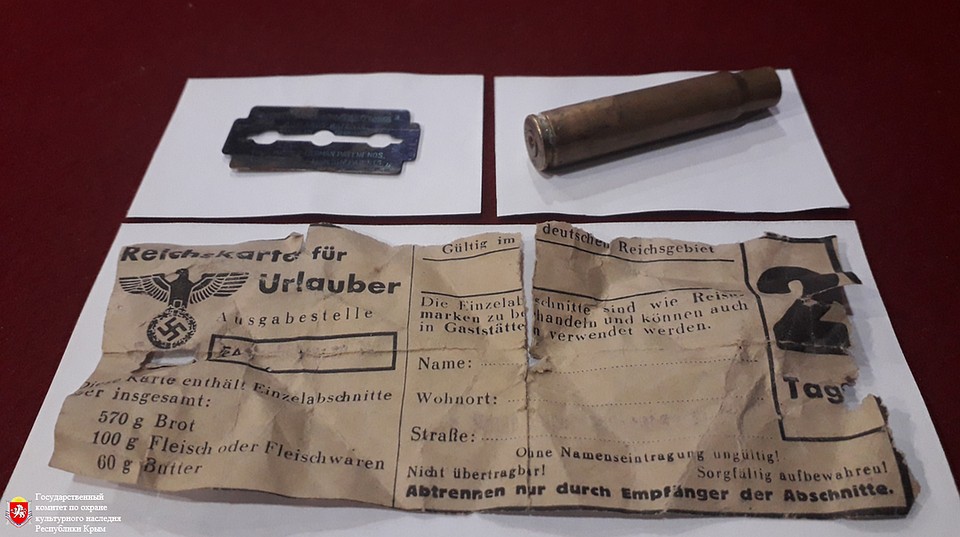 Reichskarte für
Urlauber
Ausgabestelle
Diese Karte enthält Einzelabschnitte
über insgesamt:
570 g Brot
100 g Fleisch oder Fleischwaren
60 g Butter
Gültig im deutschen Reichsgebiet
Die Einzelabschnitte sind wie Reise-
marken zu behandeln und können auch
in Gaststätten verwendet werden.
Name:
Wohnort:
Straße:
Ohne Namenseintragung ungültig!
Nicht übertragbar! Sorgfältig aufbewahren!
Abtrennen nur durch Empfänger der Abschnitte.
2
Tage
Государственный
комитет по охране
культурного наследия
Республики Крым